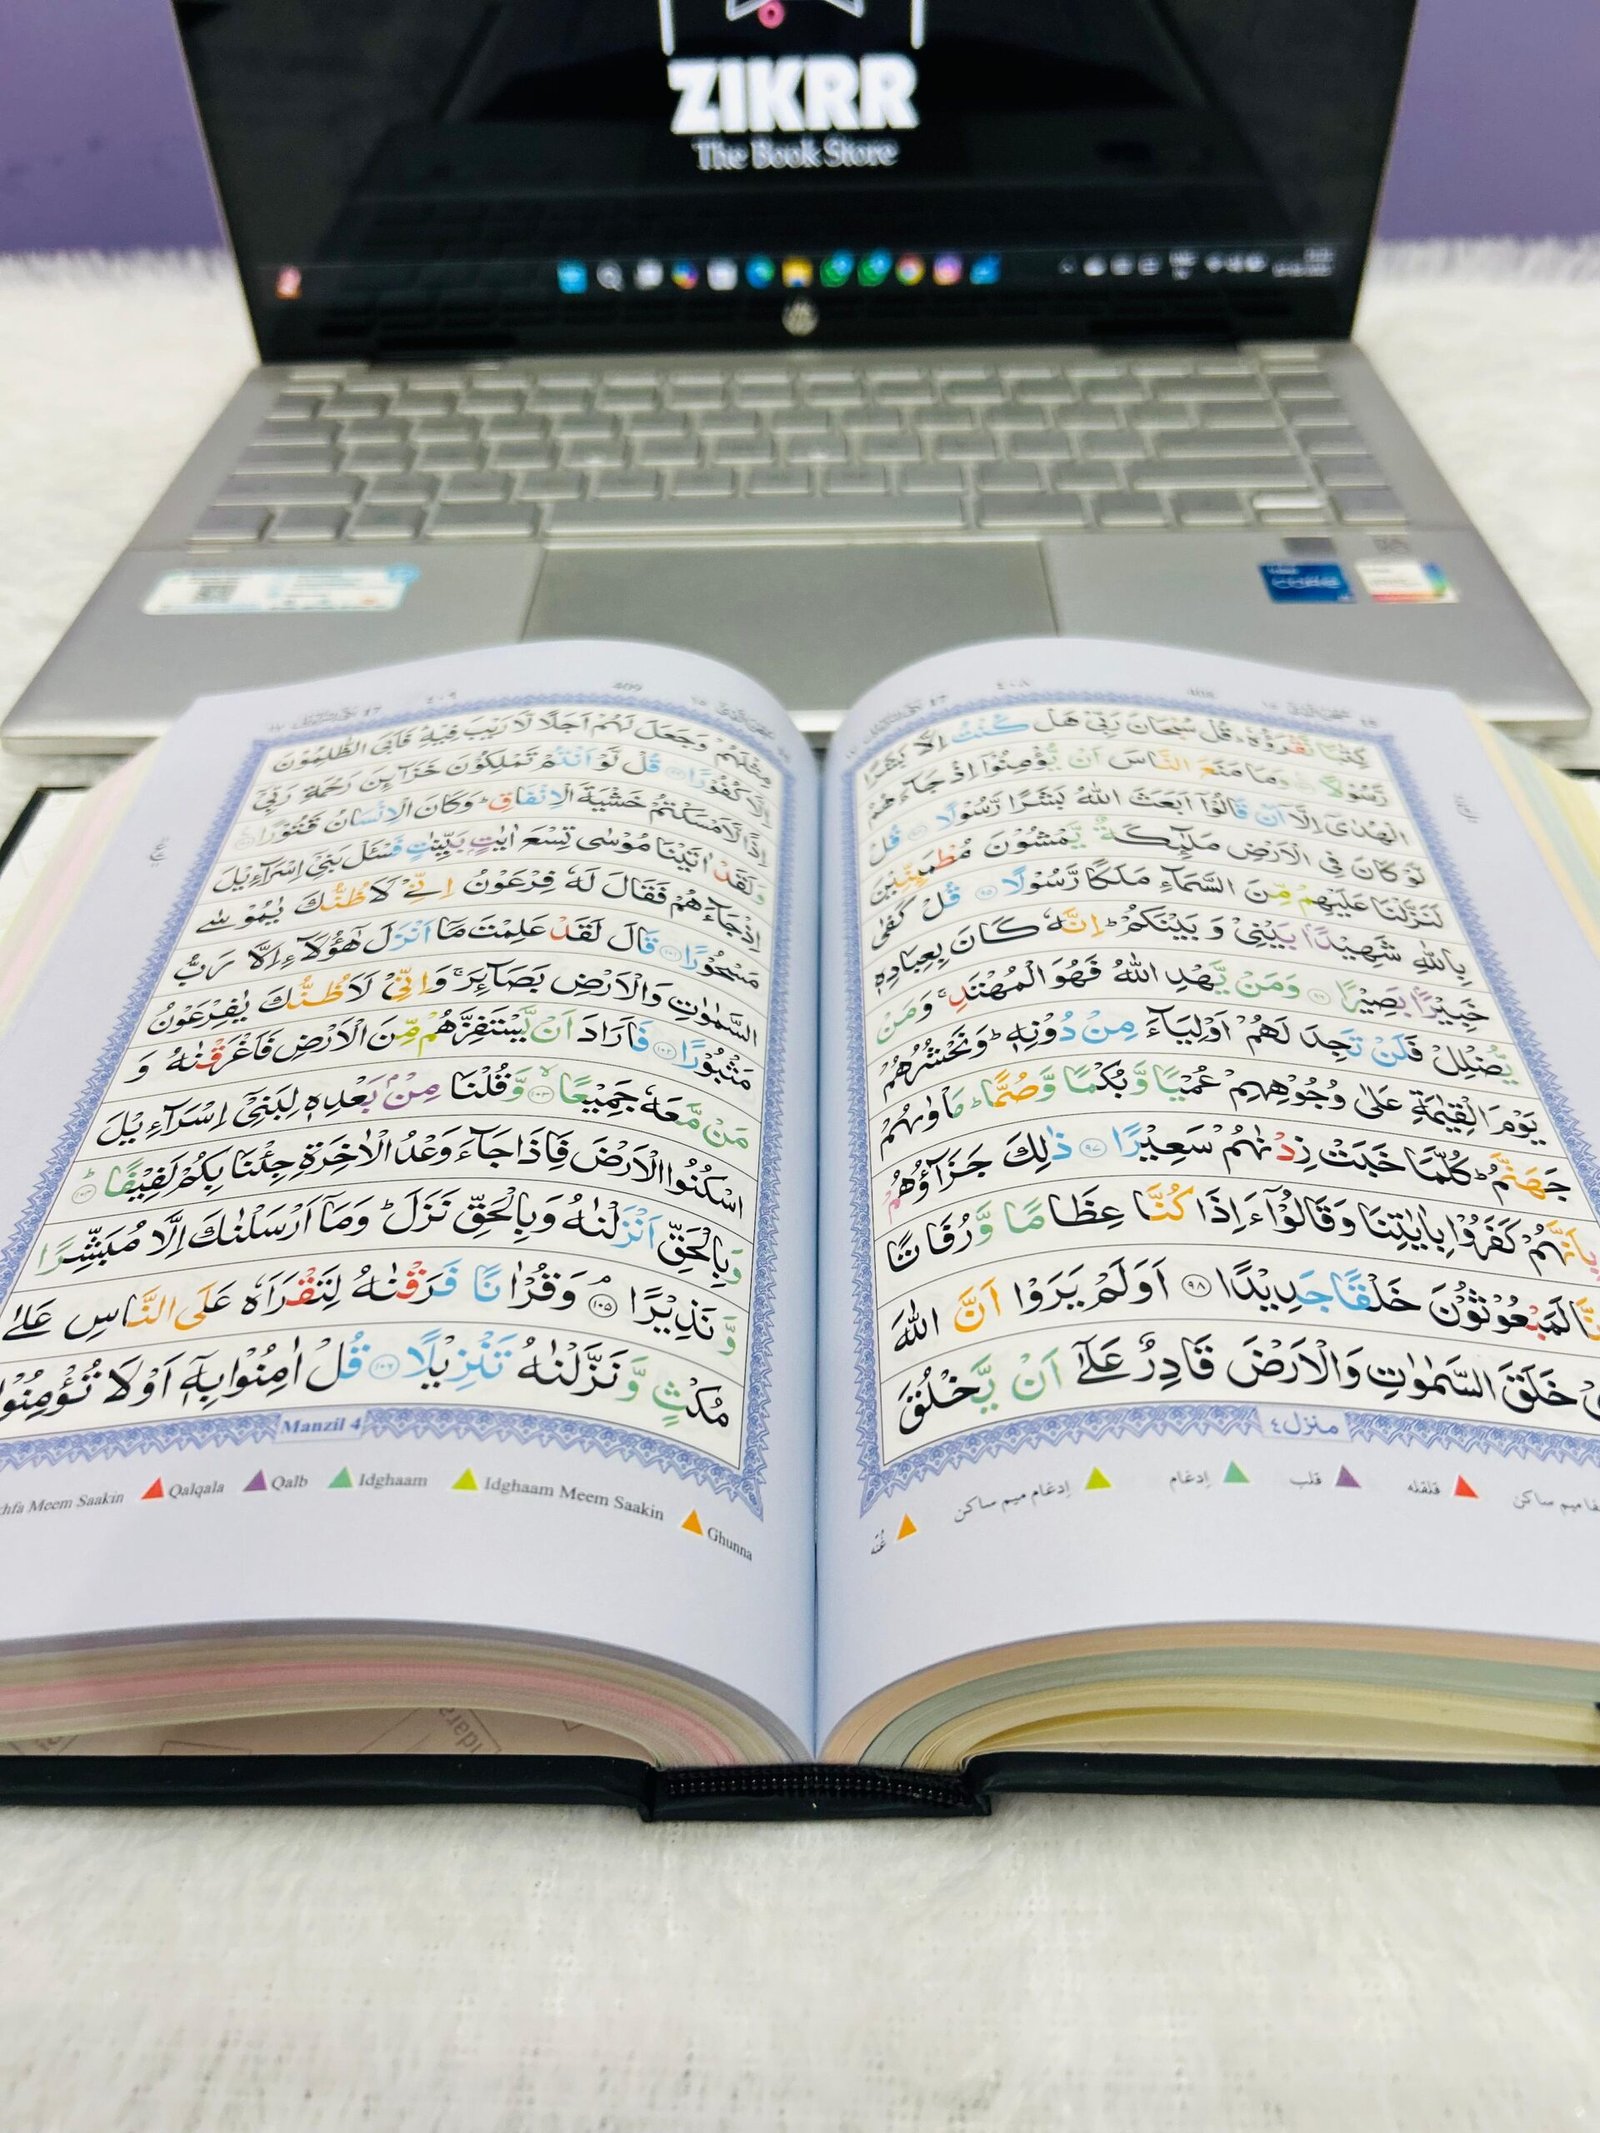 ZIKRR
The Book Store
408
٤٠٨
كِتٰبًا نَّقْرَؤُهٗ ؕ قُلْ سُبْحَانَ رَبِّيْ هَلْ كُنْتُ اِلَّا بَشَرًا
رَّسُوْلًا وَمَا مَنَعَ النَّاسَ اَنْ يُّؤْمِنُوْۤا اِذْ جَآءَهُمُ
الْهُدٰۤى اِلَّاۤ اَنْ قَالُوْۤا اَبَعَثَ اللّٰهُ بَشَرًا رَّسُوْلًا قُلْ
لَّوْ كَانَ فِي الْاَرْضِ مَلٰٓئِكَةٌ يَّمْشُوْنَ مُطْمَئِنِّيْنَ
لَنَزَّلْنَا عَلَيْهِمْ مِّنَ السَّمَآءِ مَلَكًا رَّسُوْلًا ۹۵ قُلْ كَفٰى
بِاللّٰهِ شَهِيْدًۢا بَيْنِيْ وَ بَيْنَكُمْ ؕ اِنَّهٗ كَانَ بِعِبَادِهٖ
خَبِيْرًۢا بَصِيْرًا ۹۶ وَمَنْ يَّهْدِ اللّٰهُ فَهُوَ الْمُهْتَدِ ۚ وَمَنْ
يُّضْلِلْ فَلَنْ تَجِدَ لَهُمْ اَوْلِيَآءَ مِنْ دُوْنِهٖ ؕ وَنَحْشُرُهُمْ
يَوْمَ الْقِيٰمَةِ عَلٰى وُجُوْهِهِمْ عُمْيًا وَّبُكْمًا وَّصُمًّا ؕ مَاْوٰىهُمْ
جَهَنَّمُ ؕ كُلَّمَا خَبَتْ زِدْنٰهُمْ سَعِيْرًا ۹۷ ذٰلِكَ جَزَآؤُهُمْ
بِاَنَّهُمْ كَفَرُوْا بِاٰيٰتِنَا وَقَالُوْۤا ءَاِذَا كُنَّا عِظَامًا وَّرُفَاتًا
ءَاِنَّا لَمَبْعُوْثُوْنَ خَلْقًا جَدِيْدًا ۹۸ اَوَلَمْ يَرَوْا اَنَّ اللّٰهَ
الَّذِيْ خَلَقَ السَّمٰوٰتِ وَالْاَرْضَ قَادِرٌ عَلٰۤى اَنْ يَّخْلُقَ
منزل ٤
ميم ساكن
قلقله
قلب
إدغام
إدغام ميم ساكن
غُنّه
409
٤٠٩
مِثْلَهُمْ وَجَعَلَ لَهُمْ اَجَلًا لَّا رَيْبَ فِيْهِ ؕ فَاَبَى الظّٰلِمُوْنَ
اِلَّا كُفُوْرًا قُلْ لَّوْ اَنْتُمْ تَمْلِكُوْنَ خَزَآئِنَ رَحْمَةِ رَبِّيْۤ
اِذًا لَّاَمْسَكْتُمْ خَشْيَةَ الْاِنْفَاقِ ؕ وَكَانَ الْاِنْسَانُ قَتُوْرًا
وَلَقَدْ اٰتَيْنَا مُوْسٰى تِسْعَ اٰيٰتٍۭ بَيِّنٰتٍ فَسْئَلْ بَنِيْۤ اِسْرَآءِيْلَ
اِذْ جَآءَهُمْ فَقَالَ لَهٗ فِرْعَوْنُ اِنِّيْ لَاَظُنُّكَ يٰمُوْسٰى
مَسْحُوْرًا ۱۰۱ قَالَ لَقَدْ عَلِمْتَ مَاۤ اَنْزَلَ هٰۤؤُلَآءِ اِلَّا رَبُّ
السَّمٰوٰتِ وَالْاَرْضِ بَصَآئِرَ ۚ وَاِنِّيْ لَاَظُنُّكَ يٰفِرْعَوْنُ
مَثْبُوْرًا ۱۰۲ فَاَرَادَ اَنْ يَّسْتَفِزَّهُمْ مِّنَ الْاَرْضِ فَاَغْرَقْنٰهُ وَ
مَنْ مَّعَهٗ جَمِيْعًا ۱۰۳ وَّقُلْنَا مِنْۢ بَعْدِهٖ لِبَنِيْۤ اِسْرَآءِيْلَ
اسْكُنُوا الْاَرْضَ فَاِذَا جَآءَ وَعْدُ الْاٰخِرَةِ جِئْنَا بِكُمْ لَفِيْفًا ؕ ۱۰۴
وَبِالْحَقِّ اَنْزَلْنٰهُ وَبِالْحَقِّ نَزَلَ ؕ وَمَاۤ اَرْسَلْنٰكَ اِلَّا مُبَشِّرًا
وَّنَذِيْرًا ۱۰۵ وَقُرْاٰنًا فَرَقْنٰهُ لِتَقْرَاَهٗ عَلَى النَّاسِ عَلٰى
مُكْثٍ وَّنَزَّلْنٰهُ تَنْزِيْلًا ۱۰۶ قُلْ اٰمِنُوْا بِهٖۤ اَوْ لَا تُؤْمِنُوْا
Manzil 4
Meem Saakin
Qalqala
Qalb
Idghaam
Idghaam Meem Saakin
Ghunna